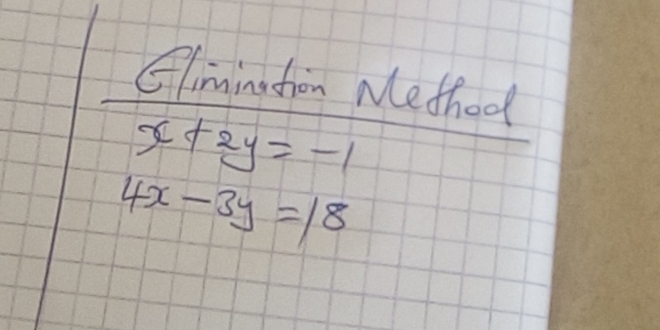 Elimination Method
x + 2y = -1
4x - 3y = 18